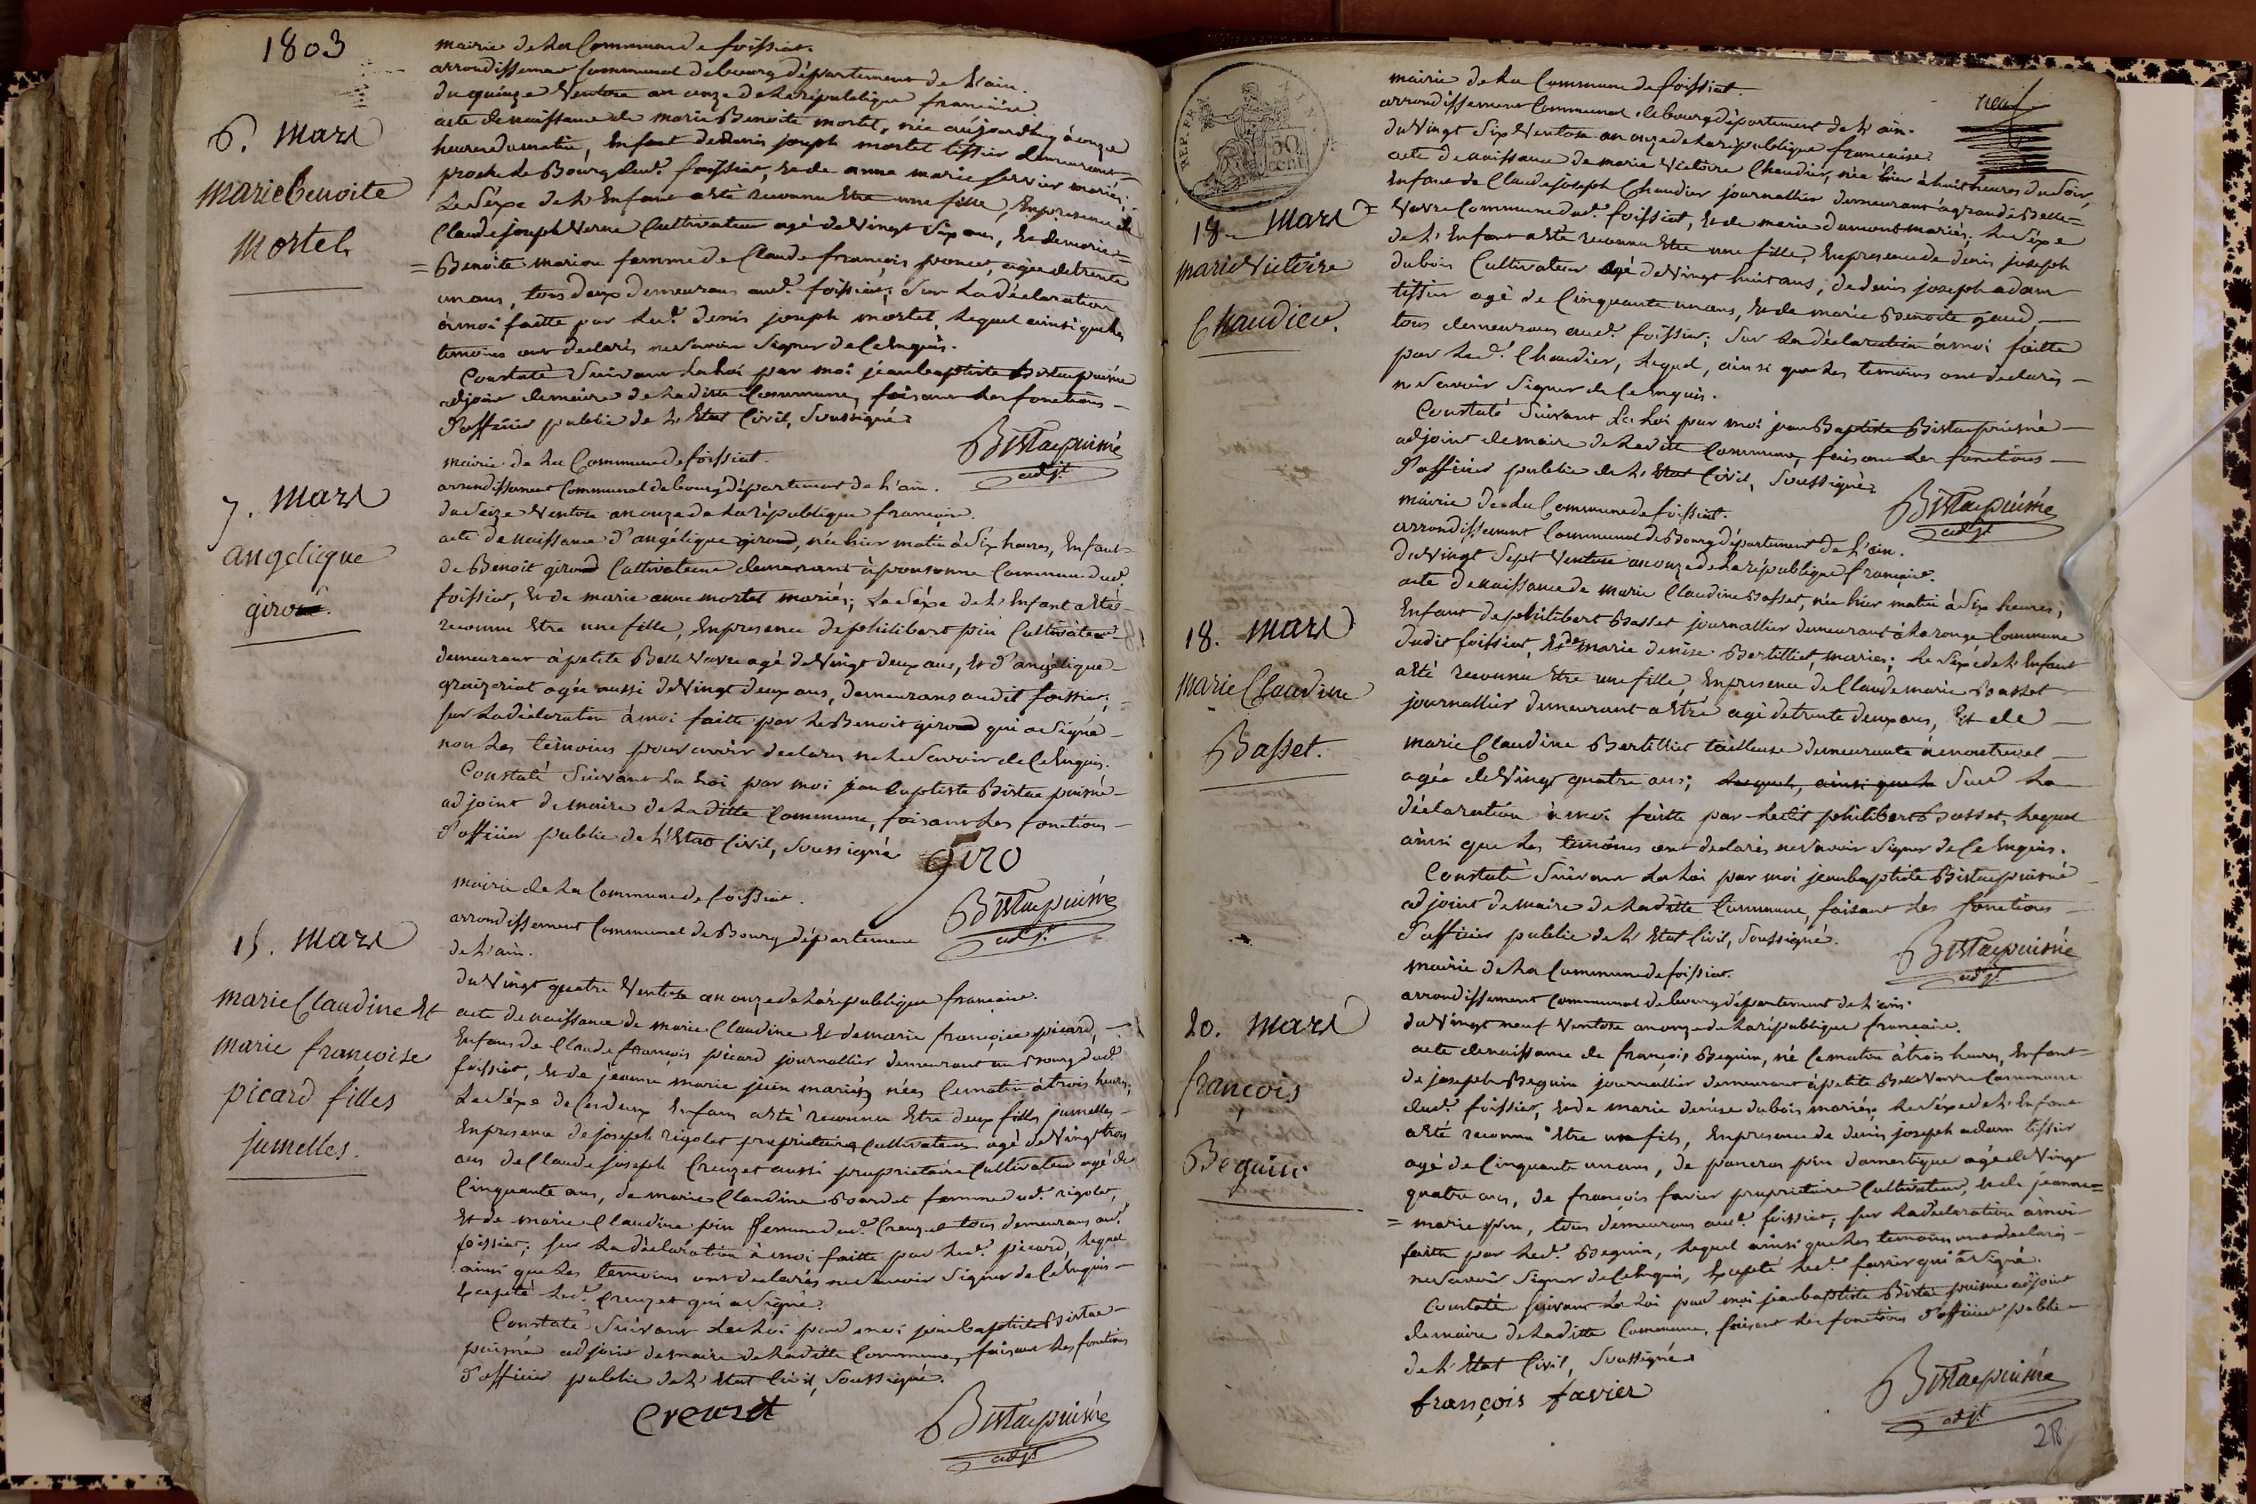 1803
6. mars
marie benoite
mortel
mairie de la Commune de foissiat.
arrondissement Communal de bourg département de L'ain.
du quinze Ventose an onze de la république francaise
acte de naissance de marie Benoite mortel, née aujourdhuy à onze
heures du matin, Enfant de denis joseph mortel tissier demeurant
proche le Bourg dud. foissiat, et de anne marie servier mariés;
Le Séxe de L'Enfant a Eté reconnu Etre une fille, En presence de
Claude joseph Verne Cultivateur agé de Vingt Six ans, Et de marie=
=Benoite marion famme de Claude françois poncet, agée de trente
un ans, tous deux demeurans aud. foissiat; Sur La déclaration
à moi faitte par Led. denis joseph mortel, Lequel ainsi que les
temoins ont declarés ne Savoir Signer de Ce Enquis.
Constaté Suivant La Loi par moi jean baptiste Bistac puisné
adjoint de maire de La ditte Commune, faisant Les fonctions
d'officier public de L'Etat Civil, Soussigné
Bistac puisné
adjt.
7. mars
angelique
giroud.
mairie de La Commune de foissiat.
arrondissement Communal de bourg département de L'ain.
du Seize Ventose an onze de La république française.
acte de naissance d'angélique giroud, née hier matin à Six heures, Enfant
de Benoit giroud Cultivateur demeurant à ponsonne Commune dud.
foissiat, Et de marie anne mortel mariés; Le Séxe de L'Enfant a Eté
reconnu Etre une fille, En presence de philibert pin Cultivateur
demeurant à petite Belle Vavre agé de Vingt deux ans, Et d'angélique
graizeriat agée aussi de Vingt deux ans, demeurans audit foissiat;
Sur La déclaration à moi faitte par Le Benoit giroud qui a Signé
non Les témoins pour avoir declarés ne Le Savoir de Ce Enquis.
Constaté Suivant La Loi par moi jean baptiste Bistac puisné
adjoint de maire de La ditte Commune, faisant Les fonctions
d'officier public de L'Etat Civil, Soussigné
giro
Bistac puisné
adjt.
15. mars
marie Claudine Et
marie françoise
picard filles
jumelles.
mairie de La Commune de foissiat.
arrondissement Communal de Bourg département
de L'ain.
du Vingt quatre Ventose an onze de La république francaise.
acte de naissance de marie Claudine Et de marie françoise picard,
Enfans de Claude françois picard journallier demeurant au Bourg dud.
foissiat, Et de jeanne marie juin mariés, nées Ce matin à trois heures;
Le Séxe de Ces deux Enfans a Eté reconnu Etre deux filles jumelles,
En presence de joseph rigolet proprietaire Cultivateur agé de Vingt trois
ans de Claude joseph Creuzet aussi proprietaire Cultivateur agé de
Cinquante ans, de marie Claudine Bordet femme dud. rigolet,
Et de marie Claudine pin femme dud. Creuzet tous demeurans aud.
foissiat; Sur La déclaration à moi faitte par Led. picard, Lequel
ainsi que Les temoins ont declarés ne Savoir Signer de Ce Enquis
Excepté Led. Creuzet qui a Signé.
Constaté Suivant La Loi par moi jean baptiste Bistac
puisné adjoint de maire de La ditte Commune, faisant Les fonctions
d'officier public de L'Etat Civil, Soussigné.
Creuzet
Bistac puisné
adjt.
REP. FRA.
50
cent.
neuf
18. mars
marie Victoire
Chaudier.
mairie de La Commune de foissiat.
arrondissement Communal de bourg département de L'ain.
du Vingt Six Ventose an onze de La république francaise
acte de naissance de marie Victoire Chaudier, née hier à huit heures du Soir,
Enfant de Claude joseph Chaudier journallier demeurant à grande Belle=
=Vavre Commune dud. foissiat, Et de marie dumont mariés; Le Séxe
de L'Enfant a Eté reconnu Etre une fille, En presence de denis joseph
dubois Cultivateur agé de Vingt huit ans, de denis joseph adam
tissier agé de Cinquante un ans, Et de marie Benoite gaud,
tous demeurans aud. foissiat; Sur La déclaration à moi faitte
par Led. Chaudier, Lequel, ainsi que Les temoins ont declarés
ne Savoir Signer de Ce Enquis.
Constaté Suivant La Loi par moi jean Baptiste Bistac puisné
adjoint de maire de La ditte Commune, faisant Les fonctions
d'officier public de L'Etat Civil, Soussigné.
Bistac puisné
adjt.
18. mars
marie Claudine
Basset.
mairie de La Commune de foissiat.
arrondissement Communal de Bourg département de L'ain.
du Vingt Sept Ventose an onze de La république française.
acte de naissance de marie Claudine Basset, née hier matin à Six heures,
Enfant de philibert Basset journallier demeurant à La ronge Commune
dudit foissiat, Et de marie denise Bertilliet, mariés; Le Séxe de L'Enfant
a Eté reconnu Etre une fille, En presence de Claude marie Basset
journallier demeurant a Etré agé de trente deux ans, Et de
marie Claudine Bertilliet tailleuse demeurante à montrevel
agée de Vingt quatre ans; Lequel, ainsi que Le Sur La
déclaration à moi faitte par Ledit philibert Basset, Lequel
ainsi que Les temoins ont declarés ne Savoir Signer de Ce Enquis.
Constaté Suivant La Loi par moi jean baptiste Bistac puisné
adjoint de maire de La ditte Commune, faisant Les fonctions
d'officier public de L'Etat Civil, Soussigné.
Bistac puisné
adjt.
20. mars
françois
Beguin.
mairie de La Commune de foissiat.
arrondissement Communal de bourg département de L'ain.
du Vingt neuf Ventose an onze de La république francaise.
acte de naissance de françois Beguin, né Ce matin à trois heures, Enfant=
de joseph Beguin journallier demeurant à petite Belle Vavre Commune
dud. foissiat, Et de marie denise dubois mariés; Le Séxe de L'Enfant
a Eté reconnu Etre un fils, En presence de denis joseph adam tissier
agé de Cinquante un ans, de pancras pin domestique agé de Vingt
quatre ans, de françois favier proprietaire Cultivateur, Et de jeanne=
=marie pin, tous demeurans aud. foissiat; Sur La déclaration à moi
faitte par Led. Beguin, Lequel ainsi que Les temoins ont declarés
ne Savoir Signer de Ce Enquis, Excepté Led. favier qui a Signé.
Constaté Suivant La Loi par moi jean baptiste Bistac puisné adjoint
de maire de La ditte Commune, faisant Les fonctions d'officier public
de L'Etat Civil, Soussigné
françois favier
Bistac puisné
adjt.
28